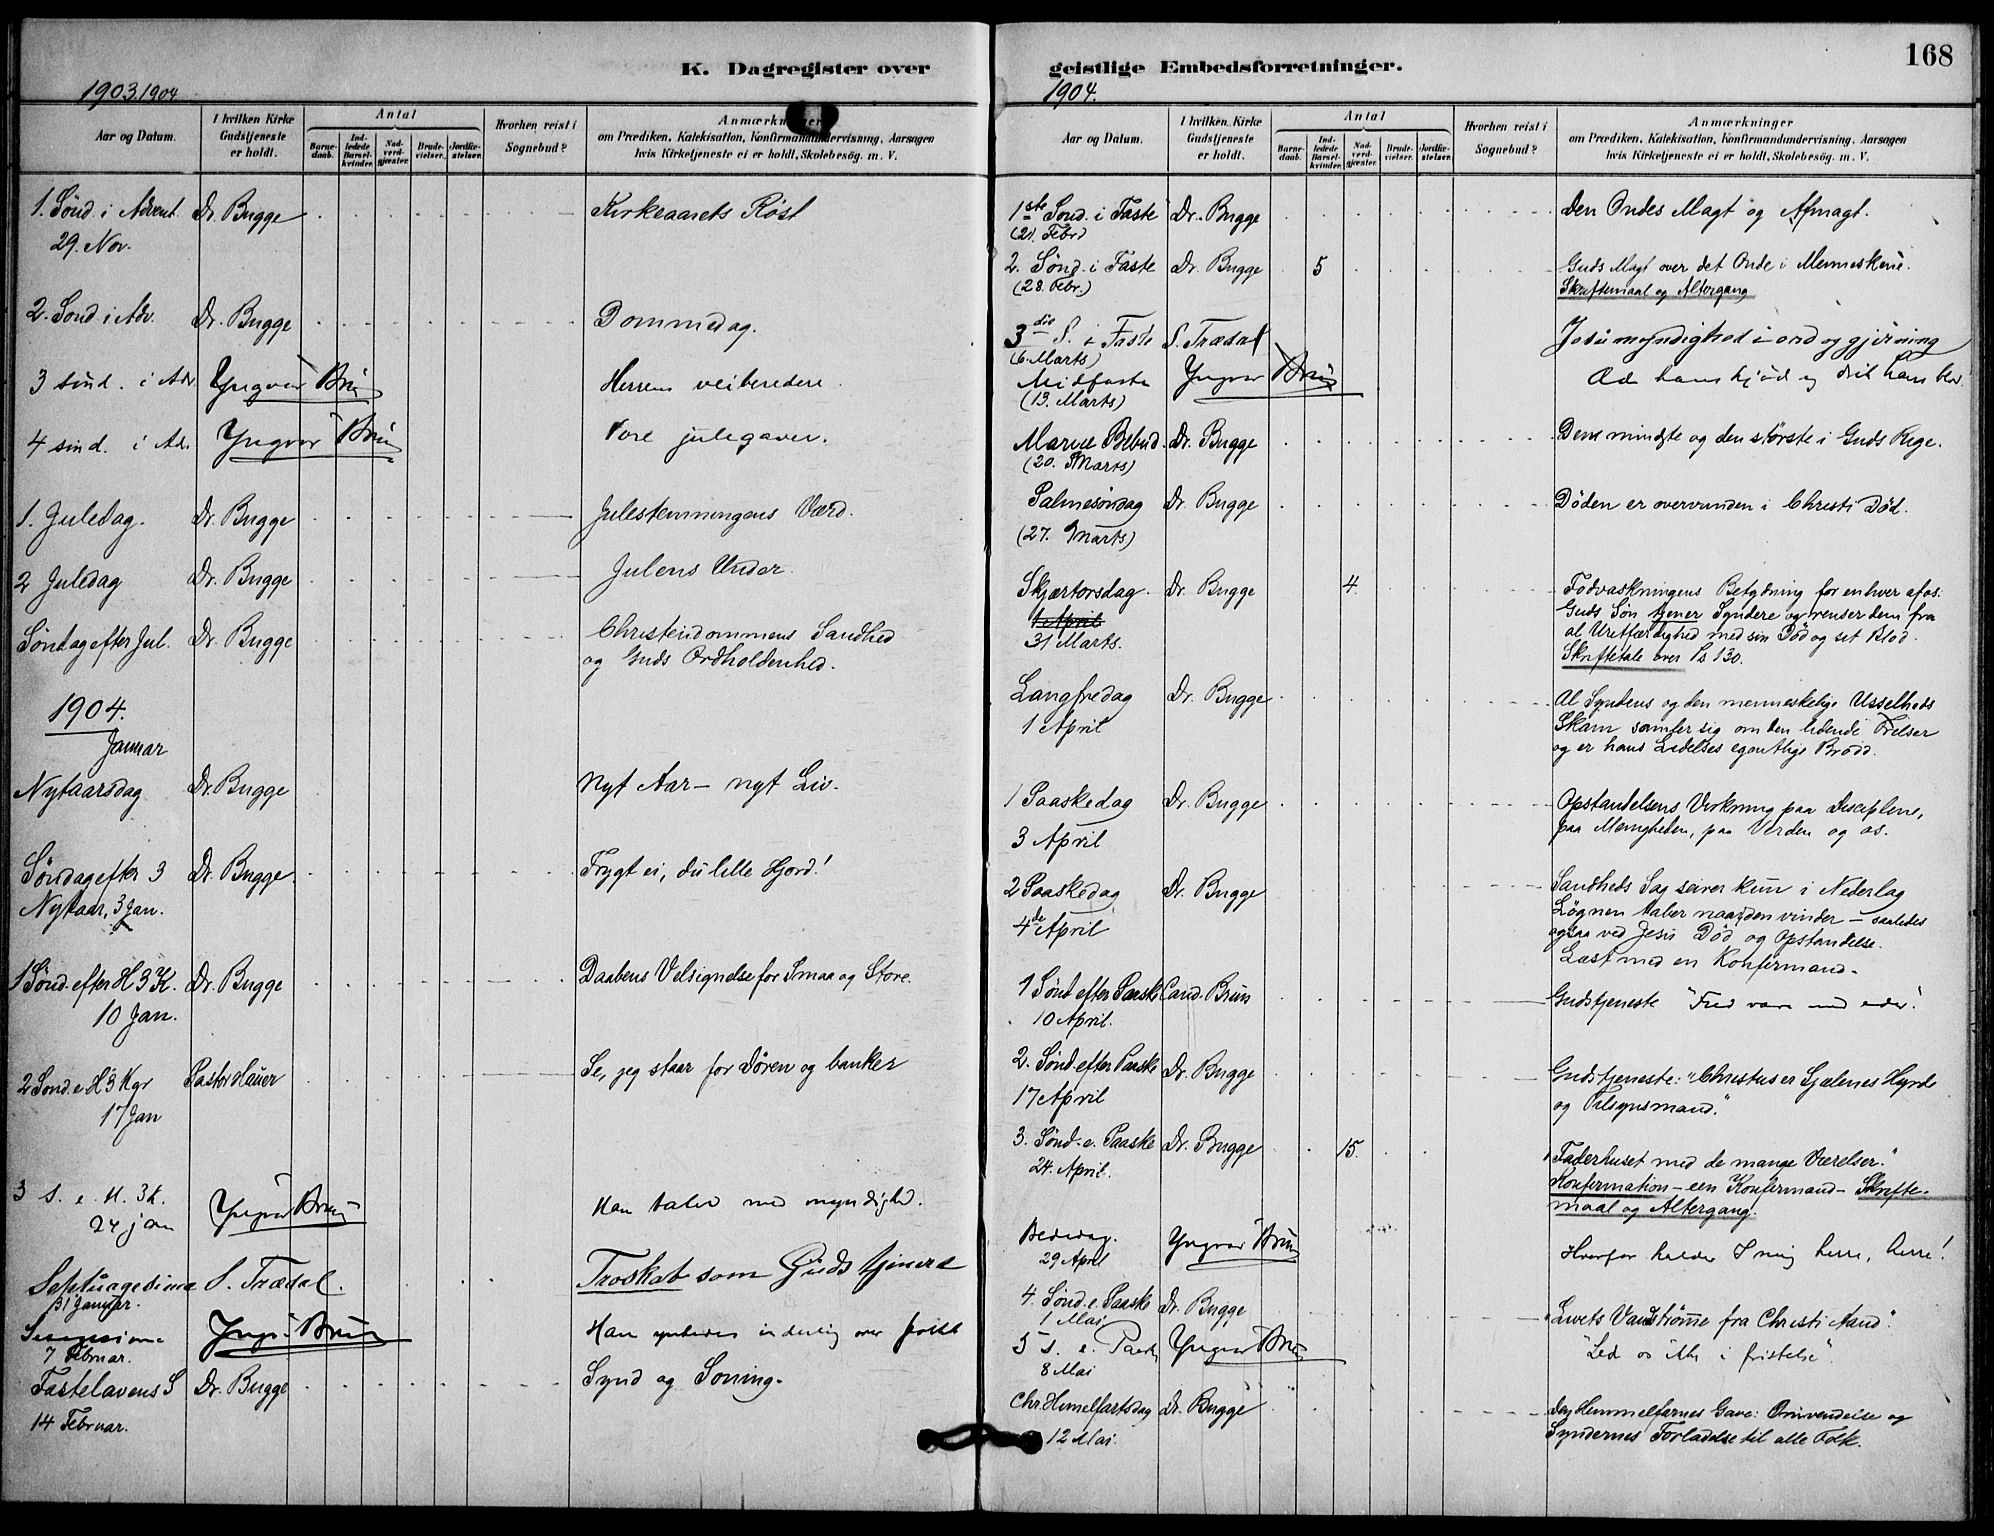 K. Dagregister over
1903.1904
Aar og Datum.
I hvilken Kirke Gudstjeneste er holdt.
Antal
Barne-daab.
Ind-ledede Barsel-kvinder.
Nad-verd-gjæster.
Brude-vielser.
Jordfæ-stelser.
Hvorhen reist i Sognebud?
Anmærkninger
om Prædiken, Katekisation, Konfirmandundervisning, Aarsagen
hvis Kirketjeneste ei er holdt, Skolebesög. m. V.
1. Sönd. i Advent Dr. Bugge Kirkeaarets Röst
29. Nov.
2. Sönd. i Adv. Dr. Bugge Dommedag.
3 sönd. i Adv. Yngvar Brun Herrens veiberedere.
4 sönd. i Adv. Yngvar Brun Vore julegaver.
1. Juledag. Dr. Bugge Julestemningens Værd.
2 Juledag Dr. Bugge Julens Under.
Söndag efter Jul. Dr. Bugge Christendommens Sandhed
og Guds Ordholdenhed.
1904.
Januar
Nytaarsdag Dr. Bugge Nyt Aar – nyt Liv.
Söndag efter 3 Dr. Bugge Frygt ei, du lille Hjord!
Nytaar, 3 Jan.
1 Sönd. efter H 3 K. Dr. Bugge Daabens Velsignelse for Smaa og Store.
10 Jan.
2 Sönd e. H 3 Kgr Pastor Hauer Se, jeg staar for Dören og banker
17 Jan
3 S. e. H. 3 K. Yngvar Brun Han taler med myndighed.
24 jan
Septuagesima S. Trædal. Troskab som Guds tjenere
31 Januar.
Yngvar Brun Han ynkedes inderlig over folket
7 Februar.
Fastelavens S Dr. Bugge Synd og Soning.
14 Februar.
168
geistlige Embedsforretninger.
1904.
Aar og Datum.
I hvilken Kirke Gudstjeneste er holdt.
Antal
Barne-daab.
Ind-ledede Barsel-kvinder.
Nad-verd-gjæster.
Brude-vielser.
Jordfæ-stelser.
Hvorhen reist i Sognebud?
Anmærkninger
om Prædiken, Katekisation, Konfirmandundervisning, Aarsagen
hvis Kirketjeneste ei er holdt, Skolebesög. m. V.
1ste Sönd. i Faste Dr. Bugge Den Ondes Magt og Afmagt.
(21. Febr)
2. Sönd. i Faste Dr. Bugge 5 Guds Magt over det Onde i Menneskene.
(28. Febr.) Skriftemaal og Altergang
3die S. i Faste S. Trædal Jesu myndighed i ord og gjerning
(6 Marts)
Midfaste Yngvar Brun Æd hans kjød og drik hans blod.
(13. Marts)
Mariæ Bebud. Dr. Bugge Den mindste og den störste i Guds Rige.
(20. Marts)
Palmesöndag Dr. Bugge Döden er overvunden i Christi Död.
(27. Marts)
Skjærtorsdag. Dr. Bugge 4. Fodvaskningens Betydning for enhver af os.
1 April Guds Sön tjener Syndere og renser dem fra
31 Marts. al Uretfærdighed med sin Död og sit Blod.
Skriftetale over Ps 130.
Langfredag Dr. Bugge Al Syndens og den menneskelige Usselheds
1 April Skam samler sig om den lidende Frelser
og er hans Lidelses egentlige Brodd.
1 Paaskedag Dr. Bugge Opstandelsens Virkning paa Disciplene,
3 April paa Menigheden, paa Verden og os.
2 Paaskedag Dr. Bugge Sandheds Sag seirer kun i Nederlag
4de April Lögnen taber naar den vinder – saaledes
ogsaa ved Jesu Död og Opstandelse.
Læst med en Konfirmand.
1 Sönd efter Paaske Cand. Brun Gudstjeneste "Fred være med eder".
10 April.
2. Sönd efter Paaske Dr. Bugge Gudstjeneste: "Christus er Sjælenes Hyrde
17 April og Tilsynsmand."
3. Sönd. e. Paaske Dr. Bugge 15. "Faderhuset med de mange Værelser."
24. April. Konfirmation – een Konfirmand – Skrifte-
maal og Altergang.
Bededag. Yngvar Brun Hvorfor kalder I mig herre, herre!
29 April
4. Sönd. e. Paaske Dr. Bugge "Livets Vandströmme fra Christi Aand".
1 Mai
5 S. e. Paaske Yngvar Brun "Led os ikke i fristelse".
8 Mai
Chr. Himelfartsdag Dr. Bugge Den Himmelfarnes Gave: Omvendelse og
12 Mai. Syndernes Forladelse til alle Folk.